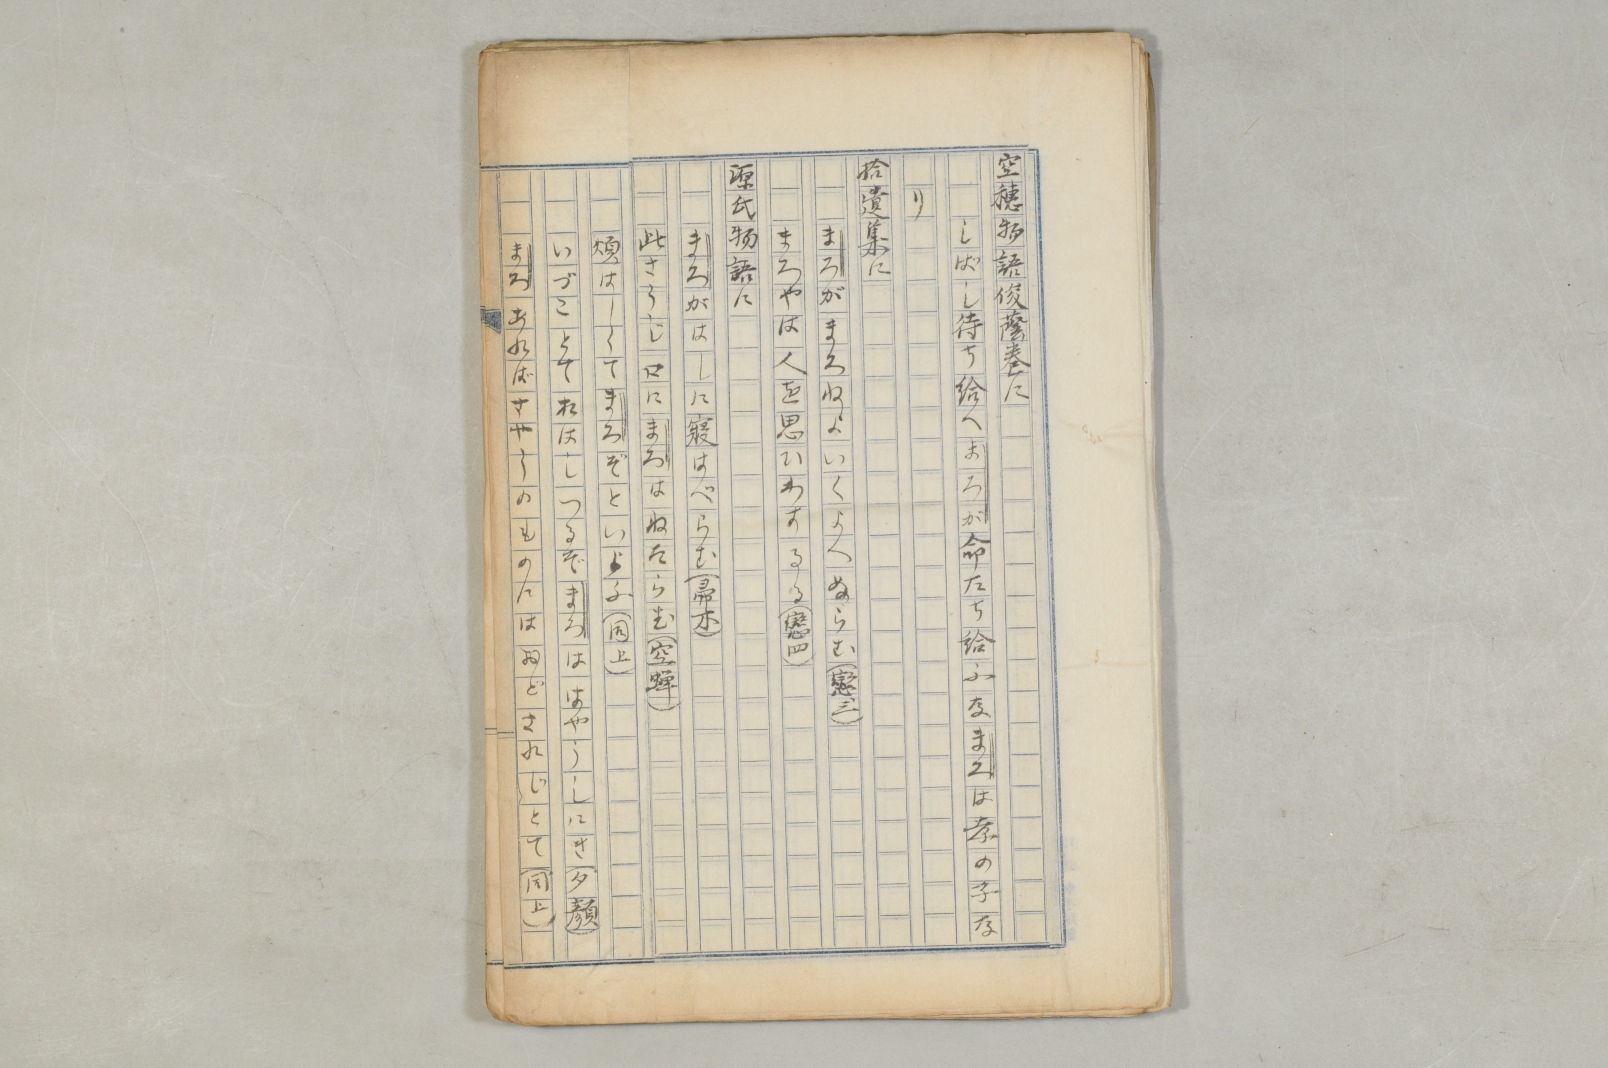 空穂物語俊蔭巻に
しばし待ち給へまろが命たち給ふなまろは孝の子な
り
拾遺集に
まろがまろねよいくよへぬらむ(戀三)
まろやは人を思ひわするる(戀四)
源氏物語に
まろがはしに寢はべらむ(帚木)
此さうじ口にまろはねたらむ(空蝉)
煩はしくてまろぞといふ(同上)
いづことておはしつるぞまろははやうしにき(夕顏)
まろあればさやうのものにはおどされじとて(同上)